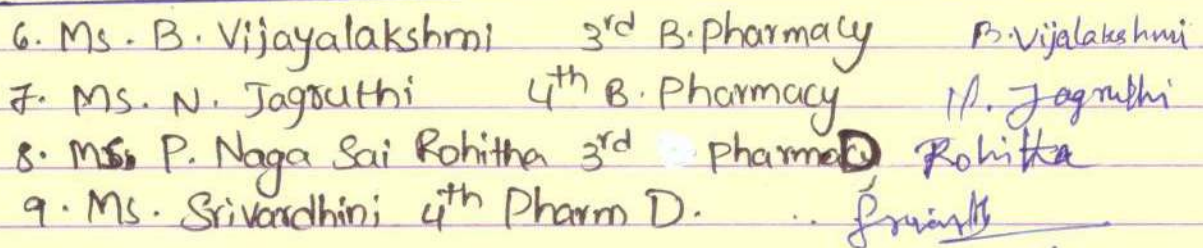 6. Ms. B. Vijayalakshmi 3rd B.Pharmacy B.Vijalakshmi
7. Ms. N. Jagruthi 4th B. Pharmacy N. Jagruthi
8. Ms. P. Naga Sai Rohitha 3rd PharmaD Rohitha
9. Ms. Srivardhini 4th Pharm D.